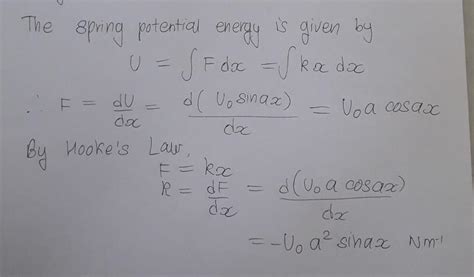 The spring potential energy is given by
U = ∫ F dx = ∫ kx dx
∴ F = dU/dx = d(U₀ sinax)/dx = U₀ a cosax
By Hooke's Law,
F = kx
k = dF/dx = d(U₀ a cosax)/dx
= -U₀ a² sinax Nm⁻¹